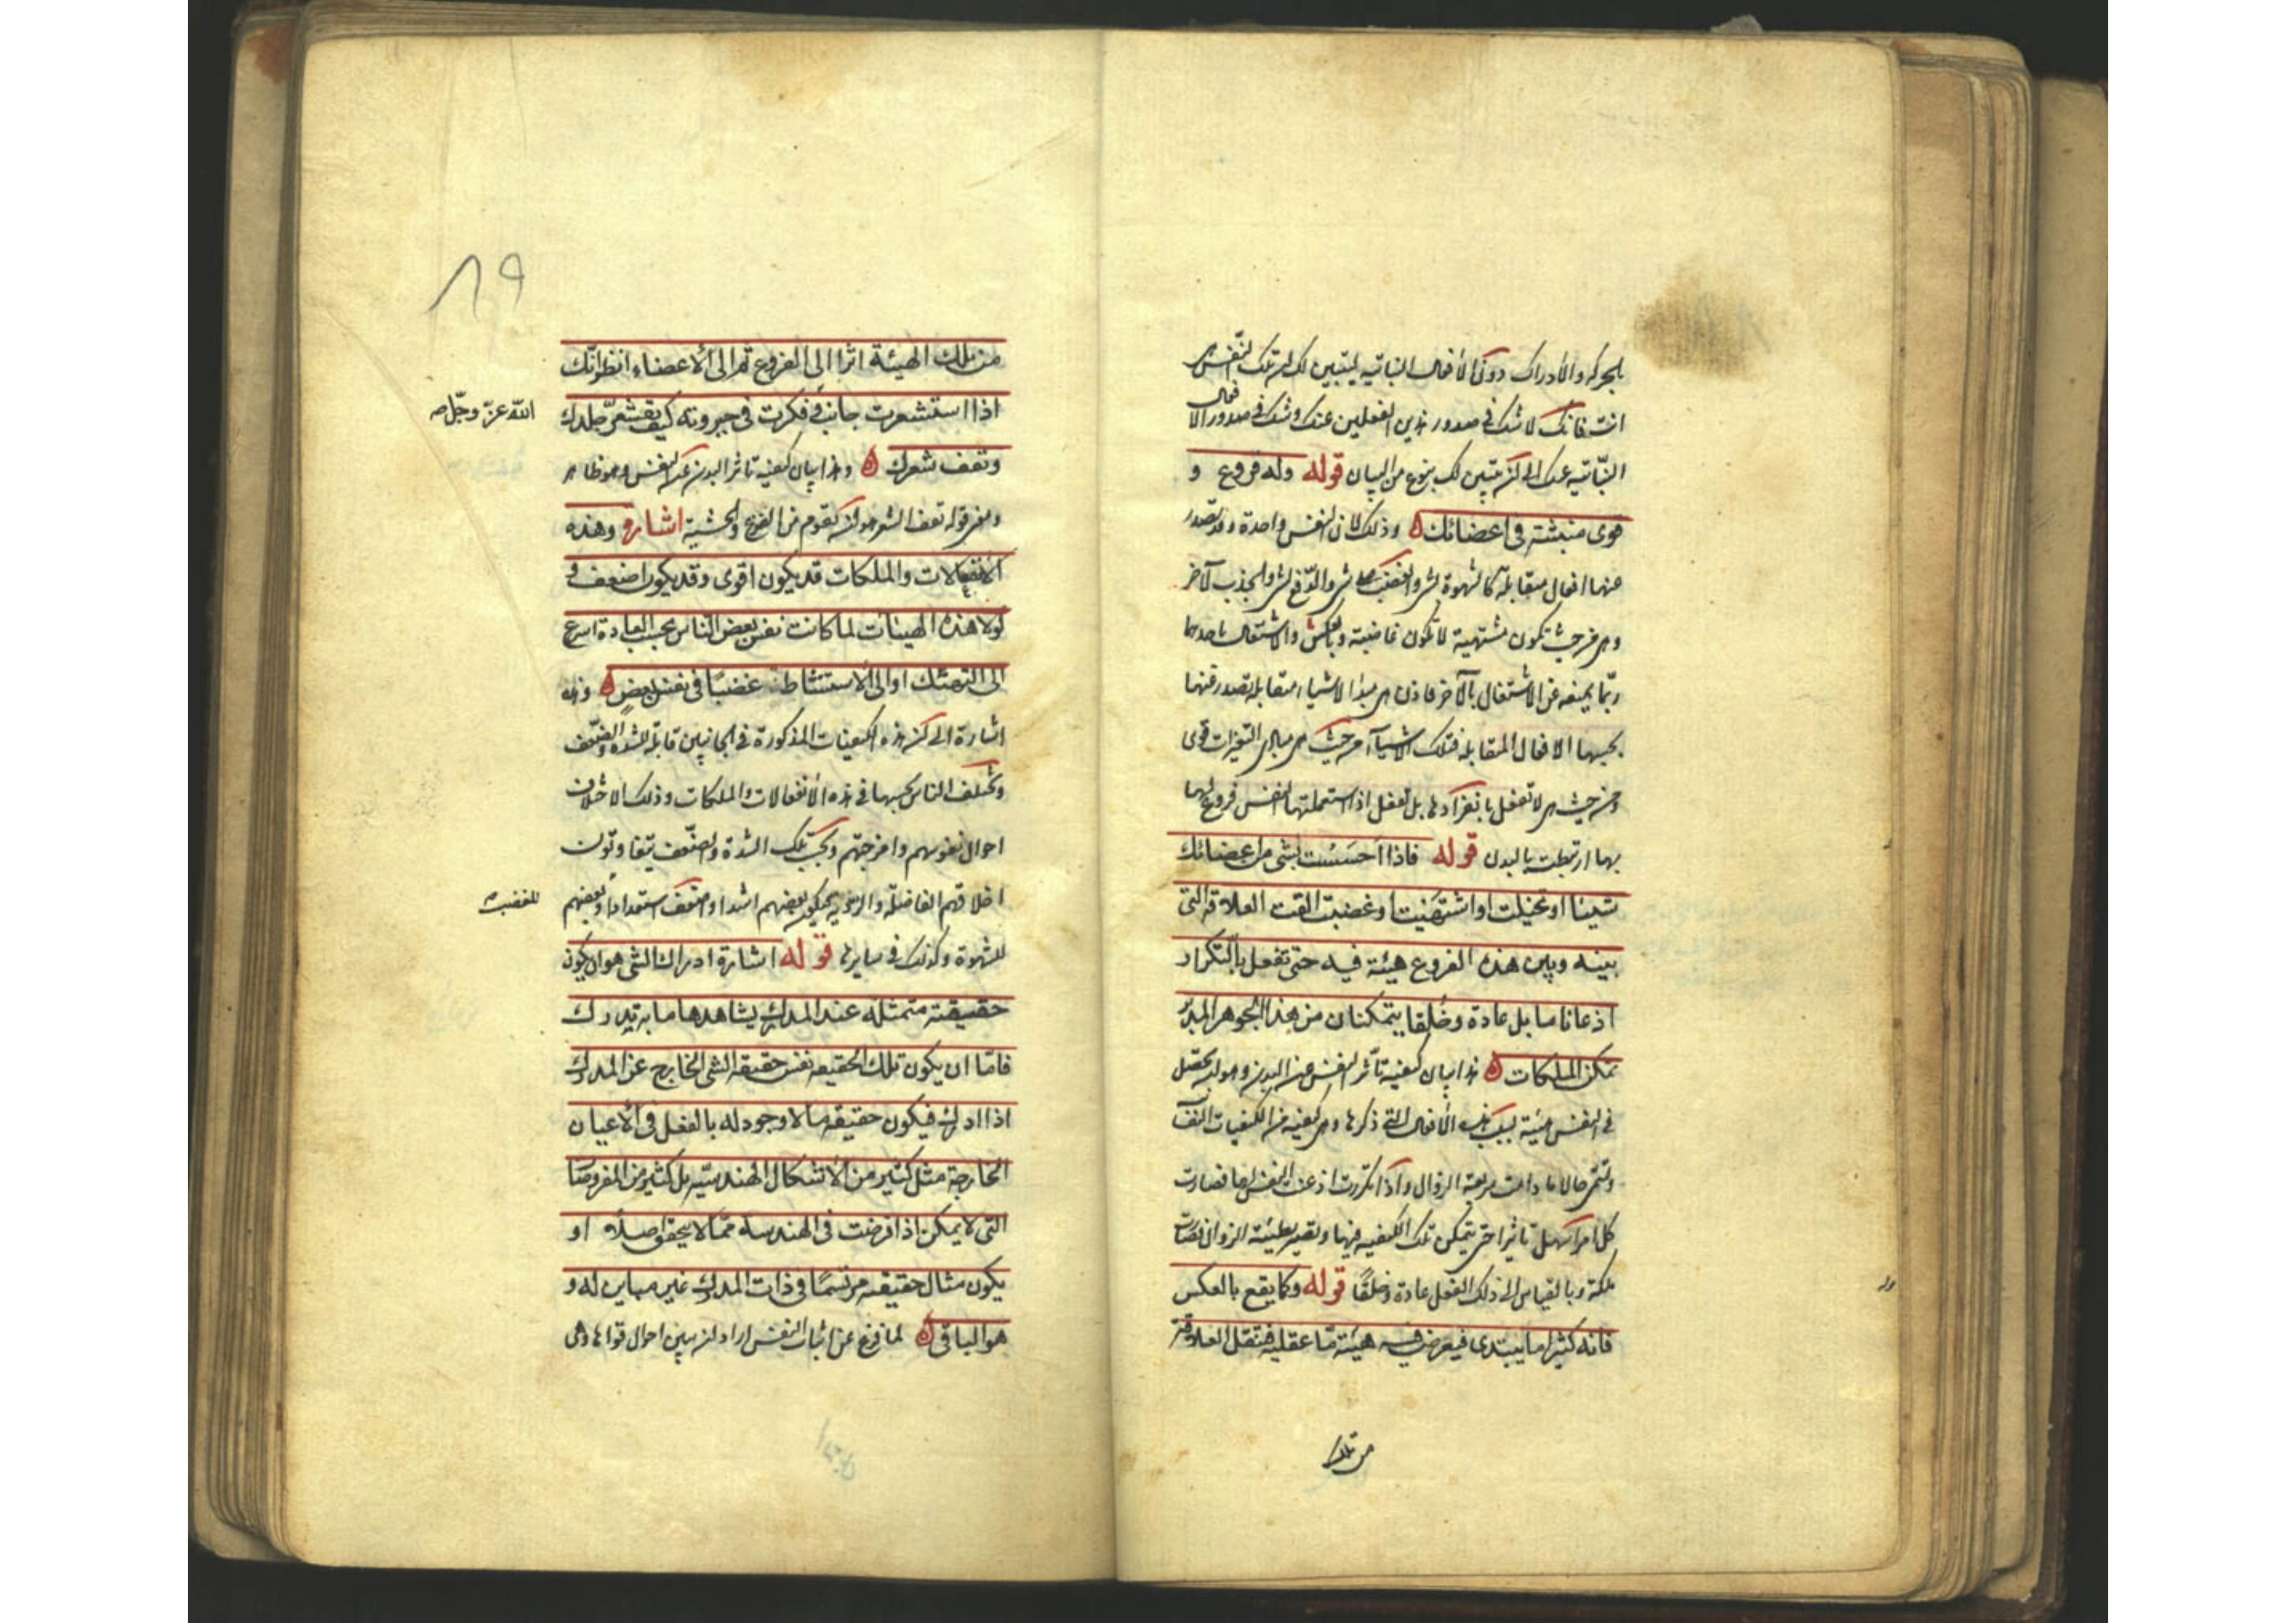 بالحركة والادراك دون الأفعال النباتية ليتبين لك ان تلك النفس هى
انت فانك لا تشك فى صدور هذين الفعلين عنك وتشك فى صدور الافعال
النباتيه عنك الى ان يتبين لك بنوع من البيان قوله وله فروع و
قوى منبثة فى اعضائك وذلك لان النفس واحدة وقد تصدر
عنها افعال متقابلة كالشهوة لشئ والغضب على شئ والدفع لشئ والجذب لآخر
وهى من حيث تكون مشتهية لا تكون غاضبة وبالعكس والاشتغال باحدهما
ربما يمنعه عن الاشتغال بالآخر فاذن هى مبدأ لاشياء متقابلة تصدر عنها
بحسبها الافعال المتقابلة فتلك الاشياء من حيث هى مبادى التغيرات قوى
ومن حيث هى لا تفعل بانفرادها بل تفعل اذا استعملتها النفس فروع لها
بها ارتبطت بالبدن قوله فاذا احسست بشئ من اعضائك
شيئا او تخيلت او اشتهيت او غضبت القت العلاقة التى
بينه وبين هذه الفروع هيئة فيه حتى تفعل بالتكرار
اذعانا ما بل عادة وخلقا يتمكنان من هذا الجوهر المدبر
تمكن الملكات هذا بيان كيفية تأثر النفس عن البدن وهو ان يحصل
فى النفس هيئة بسبب هذه الأفعال التى ذكرها وهى كيفية من الكيفيات النفسا
وتسمى حالا ما دامت سريعة الزوال واذا تكررت اذعنت النفس لها فصارت
كل مرة اسهل تأثرا حتى يتمكن تلك الكيفية فيها وتصير بطيئة الزوال فصارت
ملكة وبالقياس الى ذلك الفعل عادة وخلقًا قوله وكما يقع بالعكس
فانه كثيرا ما يبتدى فيعرض فيه هيئة ما عقلية فتنقل العلاقة
من تلك
١٩
من تلك الهيئة اثرا الى الفروع ثم الى الأعضاء انظر انك
اذا استشعرت جانب وفكرت فى جبروته كيف يقشعر جلدك
الله عزّ وجلّ صح
وتقف شعرك وهذا بيان كيفية تأثر البدن عن النفس وهو ظاهر
ومعنى قوله تقف الشعر هو ان يقوم من الفزع والخشية اشارة وهذه
الأنفعالات والملكات قد يكون اقوى وقد يكون اضعف و
لولا هذه الهيئات لما كانت نفس بعض الناس بحسب العادة اسرع
الى التهتك او الى الاستشاطة غضبًا فى نفس بعضٍ وهذه
اشارة الى ان هذه الكيفيات المذكورة فى الجانبين قابلة للشدة والضعف
وتختلف الناس بحسبها فى هذه الأنفعالات والملكات وذلك لاختلاف
احوال نفوسهم وامزجتهم وبحسب تلك الشدة والضعف يتفاوتون
اخلاقهم الفاضلة والرذيلة فيكون بعضهم اشد او اضعف استعدادا وبعضهم
للغضب صح
للشهوة وكذلك فى سايرها قوله اشارة ادراك الشى هو ان يكون
حقيقته متمثلة عند المدرك يشاهدها ما به يدرك
فامّا ان يكون تلك الحقيقة نفس حقيقة الشى الخارج عن المدرك
اذا ادرك فيكون حقيقة ما لا وجود له بالفعل فى الأعيان
الخارجة مثل كثير من الأشكال الهندسيّة بل كثير من المفروضات
التى لا يمكن اذا فرضت فى الهندسة ممّا لا يتحقق اصلاً او
يكون مثال حقيقته مرتسمًا فى ذات المدرك غير مباين له و
هو الباقى لما فرغ عن اثبات النفس اراد ان يبين احوال قواها وهى